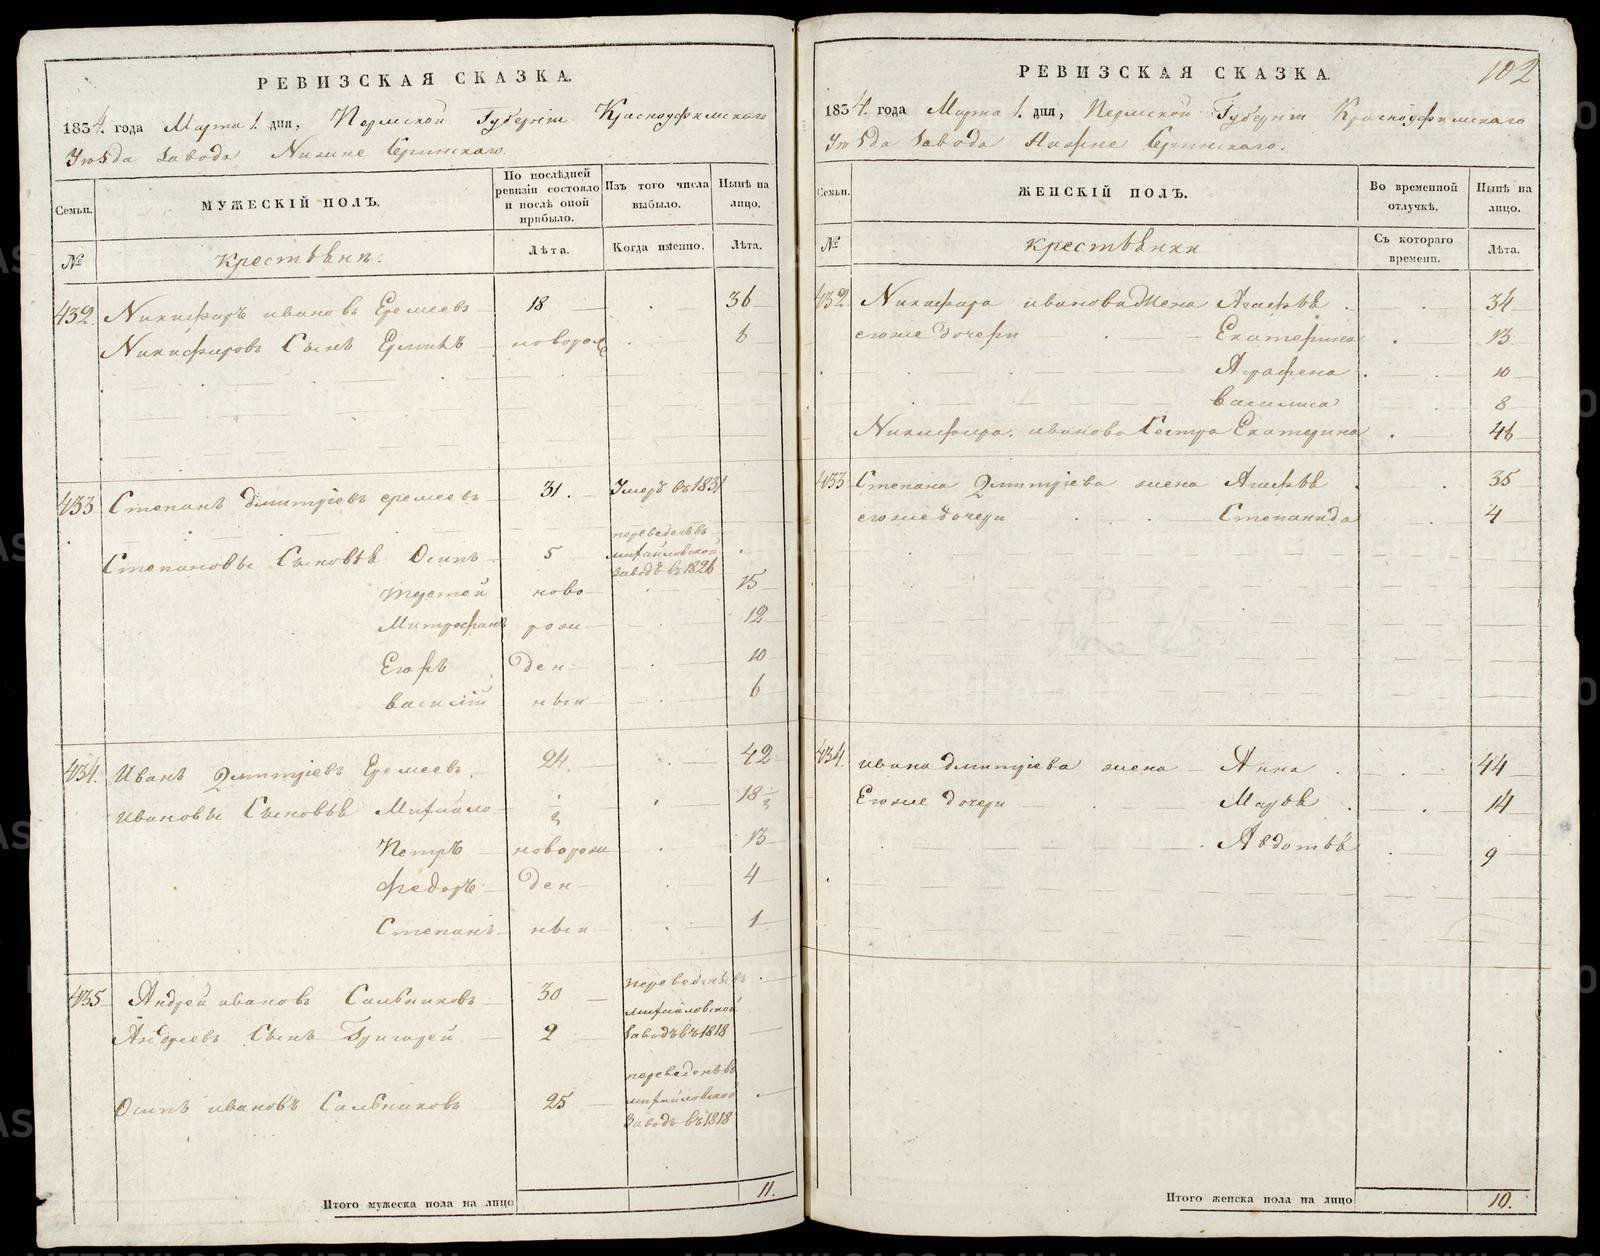 РЕВИЗСКАЯ СКАЗКА.
1834. года Марта 1. дня, Пермской Губернiи Красноуфимскаго
Уѣзда Завода Нижне Сергинскаго.
Семьи.
МУЖЕСКIЙ ПОЛЪ.
По послѣдней ревизiи состояло и послѣ оной прибыло.
Изъ того числа выбыло.
Нынѣ на лицо.
№
Крестьянѣ.
Лѣта.
Когда именно.
Лѣта.
432. Никифоръ ивановъ Еремеевъ 18 36
Никифоровъ Сынъ новорож 6
433 Степанъ дмитрiевъ еремеевъ 31. Умеръ въ 1831
Степановы Сыновья Осипъ 5 переведенъ въ михайловской Заводъ въ 1826
ново 15
Митрофанъ рож 12
Егоръ ден 10
василiй ныи 6
434. Иванъ Дмитрiевъ Еремеевъ. 24. 42
ивановы Сыновья Михайло ½ 18½
Петръ новорож 13
федоръ ден 4
Степанъ ныи 1
435 Андрей ивановъ Сальниковъ 30 переведенъ въ михайловской
Андреевъ Сынъ Григорей 2 Заводъ въ 1818
Осипъ ивановъ Сальниковъ 25 переведенъ въ михайловской Заводъ въ 1818
Итого мужеска пола на лицо 11.
102
РЕВИЗСКАЯ СКАЗКА.
1834. года Марта 1. дня, Пермской Губернiи Красноуфимскаго
Уѣзда Завода Нижне Сергинскаго.
Семьи.
ЖЕНСКIЙ ПОЛЪ.
Во временной отлучкѣ.
Нынѣ на лицо.
№
крестьянки
Съ котораго времени.
Лѣта.
432 Никифора иванова Жена Агафья 34
егоже дочери Екатерина 13
Аграфена 10
василиса 8
Никифора иванова Сестра Екатерина 46
433 Степана Дмитрiева жена Агафья 35
егоже дочери Степанида 4
434. ивана дмитрiева жена Анна 44
Егоже дочери Марья 14
Авдотья 9
Итого женска пола на лицо 10.